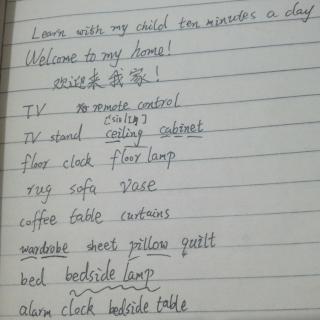 Learn with my child ten minutes a day
Welcome to my home!
欢迎来我家!
TV remote control
TV stand ceiling cabinet
floor clock floor lamp
rug sofa vase
coffee table curtains
wardrobe sheet pillow quilt
bed bedside lamp
alarm clock bedside table